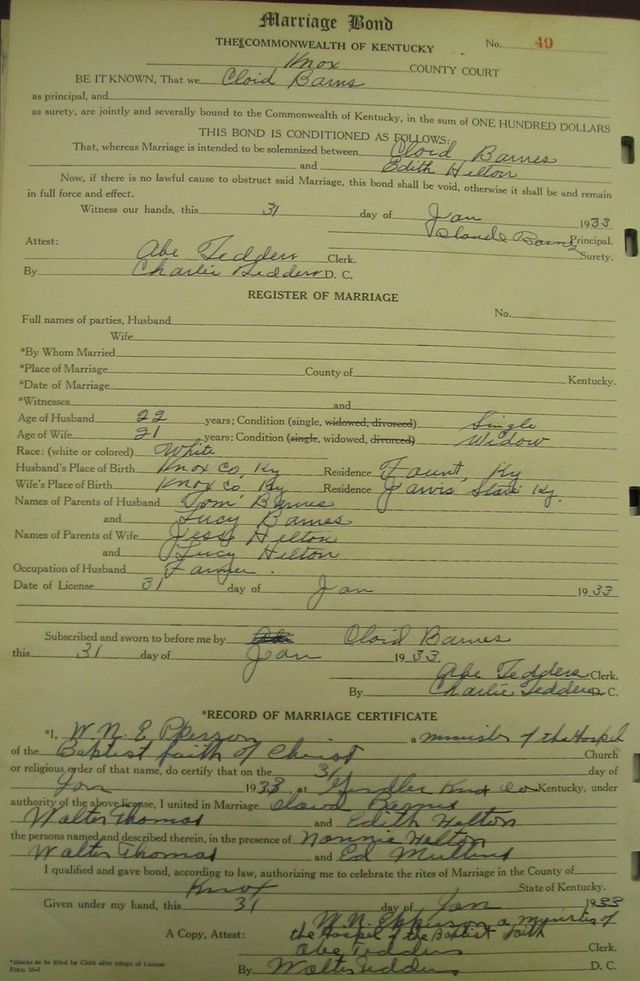 Marriage Bond
THE COMMONWEALTH OF KENTUCKY No. 49
Knox COUNTY COURT
BE IT KNOWN, That we Cloid Barns
as principal, and
as surety, are jointly and severally bound to the Commonwealth of Kentucky, in the sum of ONE HUNDRED DOLLARS
THIS BOND IS CONDITIONED AS FOLLOWS:
That, whereas Marriage is intended to be solemnized between Cloid Barnes
and Edith Helton
Now, if there is no lawful cause to obstruct said Marriage, this bond shall be void, otherwise it shall be and remain
in full force and effect.
Witness our hands, this 31 day of Jan 1933
Principal.
Attest: Surety.
Abe Tedders Clerk.
By Charlie Tedders D. C.
REGISTER OF MARRIAGE
No.
Full names of parties, Husband
Wife
*By Whom Married
*Place of Marriage County of Kentucky.
*Date of Marriage
*Witnesses and
Age of Husband 22 years; Condition (single, widowed, divorced) Single
Age of Wife 21 years; Condition (single, widowed, divorced) Widow
Race: (white or colored) White
Husband's Place of Birth Knox Co, Ky Residence Faunt, Ky
Wife's Place of Birth Knox Co, Ky Residence Jarvis Store Ky.
Names of Parents of Husband Tom Barnes
and Lucy Barnes
Names of Parents of Wife Jess Helton
and Lucy Helton
Occupation of Husband Farmer.
Date of License 31 day of Jan 1933
Subscribed and sworn to before me by Cloid Barnes
this 31 day of Jan 1933.
Abe Tedders Clerk.
By Charlie Tedders D. C.
*RECORD OF MARRIAGE CERTIFICATE
*I, W. N. Epperson a minister of the Gospel
of the Baptist faith of Christ Church
or religious order of that name, do certify that on the 31 day of
Jan 1933, at Knox Co Kentucky, under
authority of the above license, I united in Marriage
Walter Thomas and Edith Helton
the persons named and described therein, in the presence of Nannie Helton
Walter Thomas and Ed
I qualified and gave bond, according to law, authorizing me to celebrate the rites of Marriage in the County of
Knox State of Kentucky.
Given under my hand, this 31 day of Jan 1933
W. N. Epperson a minister of
A Copy, Attest: the Gospel of the Baptist faith
Abe Tedders Clerk.
By Walter Tedders D. C.
*Blanks to be filled by Clerk after return of License